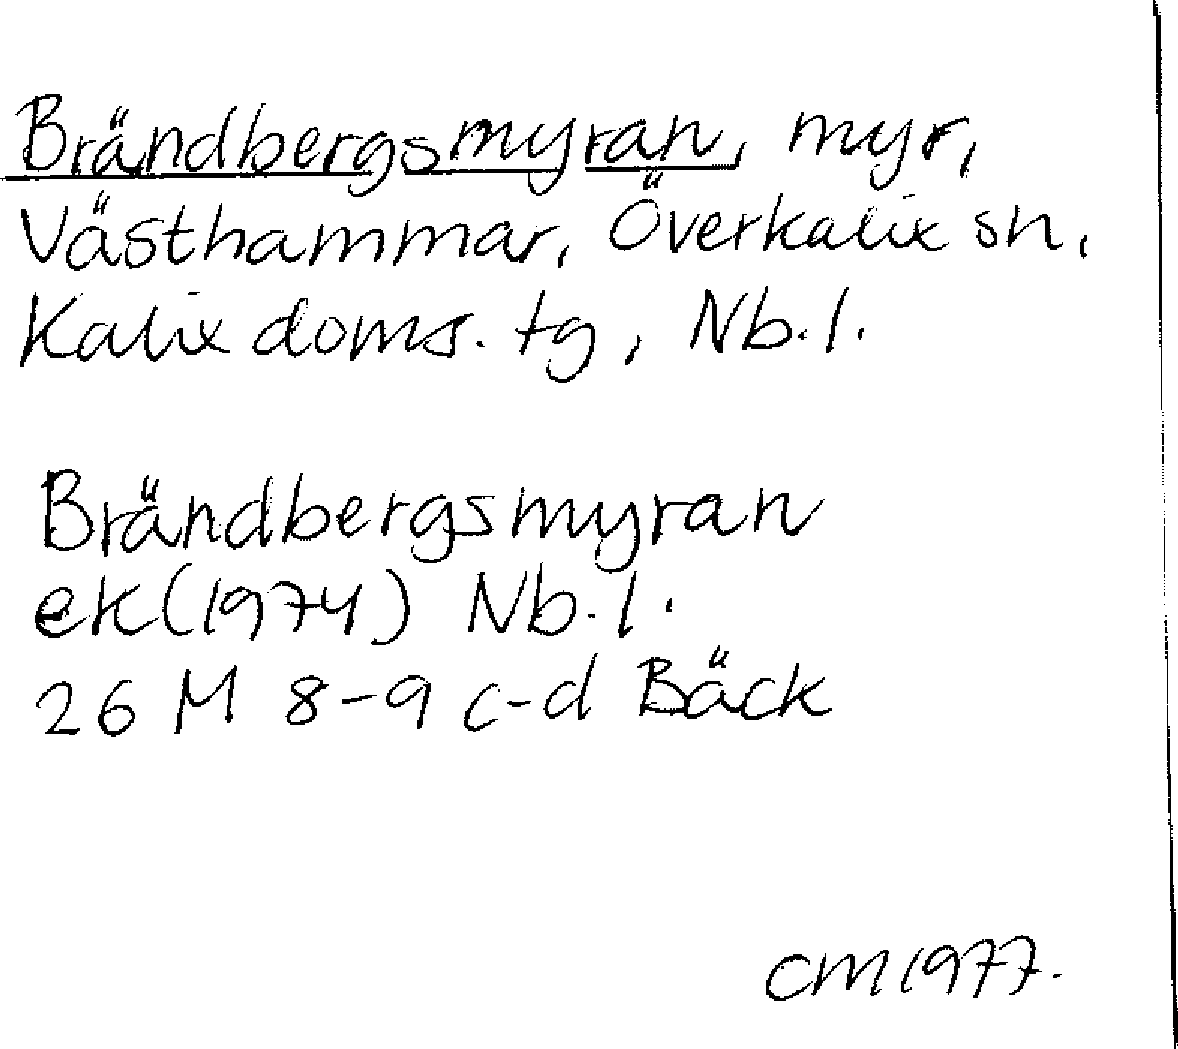 Brändbergsmyran, myr,
Västhammar, Överkalix sn,
Kalix doms. tg, Nb.l.
Brändbergsmyran
ek(1974) Nb.l.
26 M 8-9 c-d Bäck
CM1977.